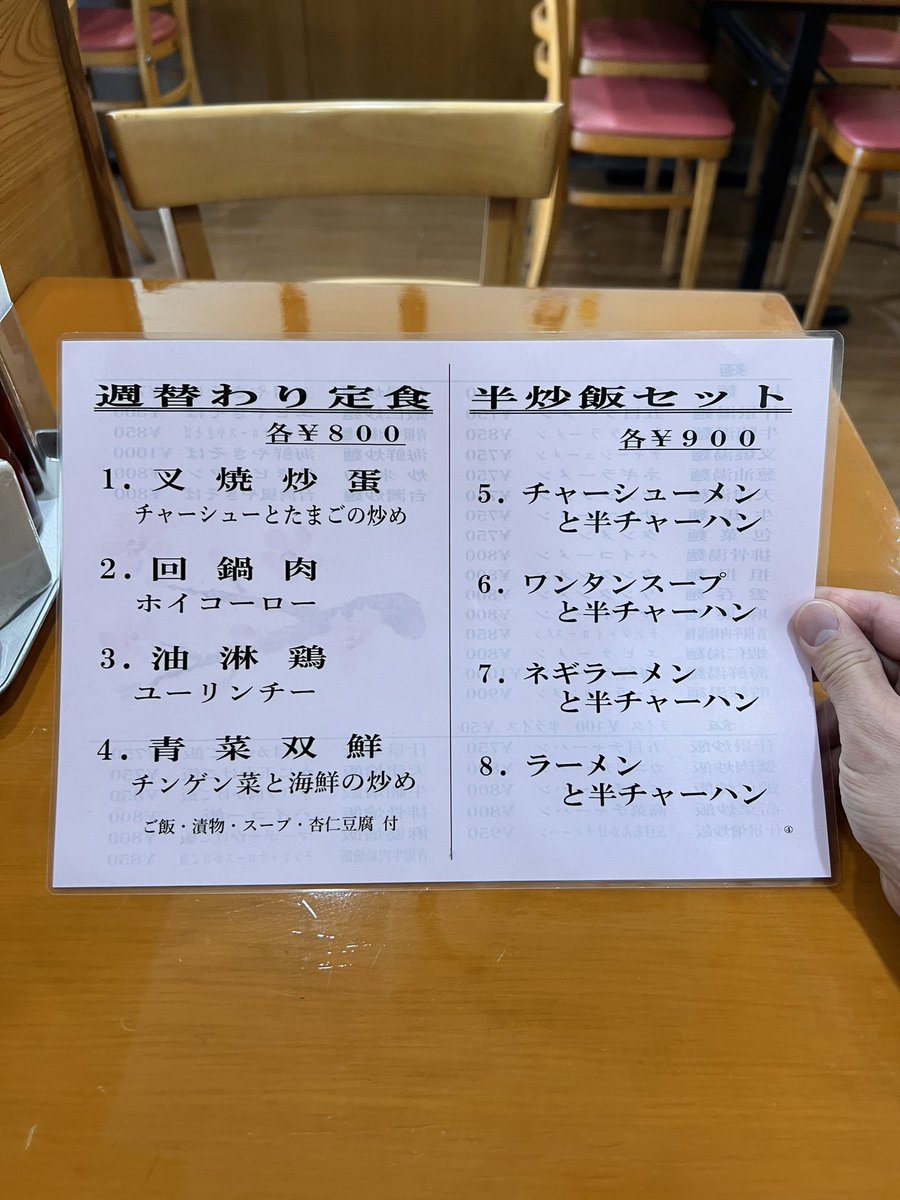 週替わり定食
各￥８００
1. 叉焼炒蛋
チャーシューとたまごの炒め
2. 回鍋肉
ホイコーロー
3. 油淋鶏
ユーリンチー
4. 青菜双鮮
チンゲン菜と海鮮の炒め
ご飯・漬物・スープ・杏仁豆腐 付
半炒飯セット
各￥９００
5. チャーシューメン
と半チャーハン
6. ワンタンスープ
と半チャーハン
7. ネギラーメン
と半チャーハン
8. ラーメン
と半チャーハン
④